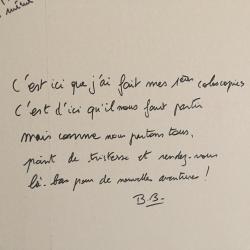 même
C'est ici que j'ai fait mes 1ères coloscopies
C'est d'ici qu'il nous faut partir
mais comme nous partons tous,
point de tristesse et rendez-vous
là-bas pour de nouvelles aventures !
B.B.